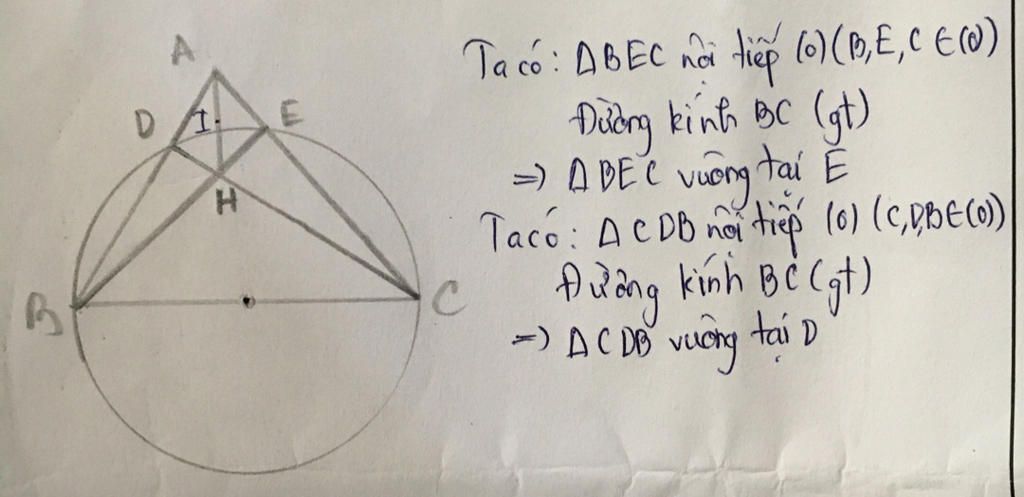 A
D
I
E
H
B
C
Ta có: ΔBEC nội tiếp (O) (B, E, C ∈ (O))
Đường kính BC (gt)
=) ΔBEC vuông tại E
Ta có: ΔCDB nội tiếp (O) (C, D, B ∈ (O))
Đường kính BC (gt)
=) ΔCDB vuông tại D